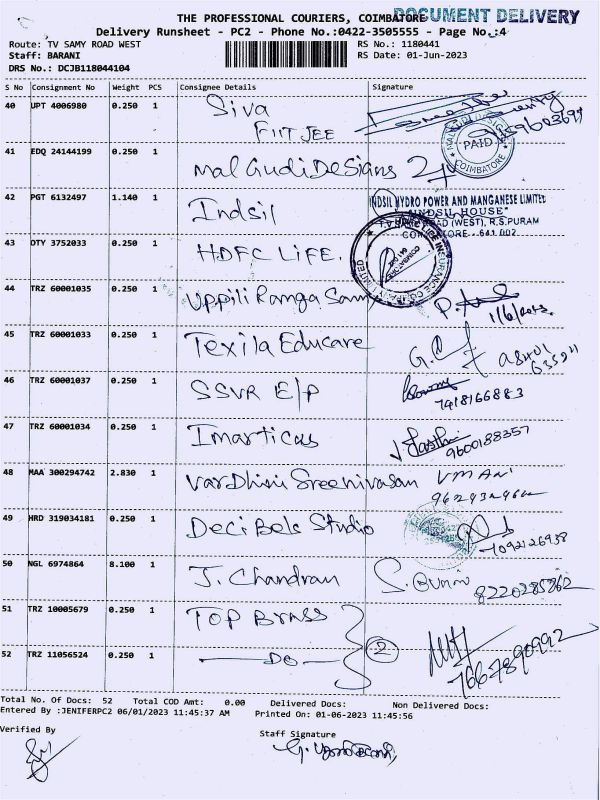 THE PROFESSIONAL COURIERS, COIMBATORE
DOCUMENT DELIVERY
Delivery Runsheet - PC2 - Phone No.:0422-3505555 - Page No.:4
Route: TV SAMY ROAD WEST
RS No.: 1180441
Staff: BARANI
RS Date: 01-Jun-2023
DRS No.: DCJB118044104
S No Consignment No Weight PCS Consignee Details Signature
40 UPT 4006980 0.250 1 Siva
FIITJEE
PAID
COIMBATORE
41 EDQ 24144199 0.250 1 MalGudi DeSigns
42 PGT 6132497 1.140 1 Indsil
INDSIL HYDRO POWER AND MANGANESE LIMITED
"INDSIL HOUSE"
T.V. SAMY ROAD (WEST), R.S.PURAM
COIMBATORE - 641 002
43 DTY 3752033 0.250 1 HDFC LIFE.
44 TRZ 60001035 0.250 1 Uppili Ranga Samy
1/6/2023
45 TRZ 60001033 0.250 1 Texila Educare
46 TRZ 60001037 0.250 1 SSVR E/P
7418166883
47 TRZ 60001034 0.250 1 Imarticus
9600188357
48 MAA 300294742 2.830 1 VarDhini Sreenivasan VMANi
49 HRD 319034181 0.250 1 DeciBels Studio
7092126938
50 NGL 6974864 8.100 1 J. Chandran
8220285862
51 TRZ 10005679 0.250 1 TOP BRASS
2
52 TRZ 11056524 0.250 1 DO
7667890992
Total No. Of Docs: 52 Total COD Amt: 0.00 Delivered Docs: Non Delivered Docs:
Entered By :JENIFERPC2 06/01/2023 11:45:37 AM Printed On: 01-06-2023 11:45:56
Verified By
Staff Signature